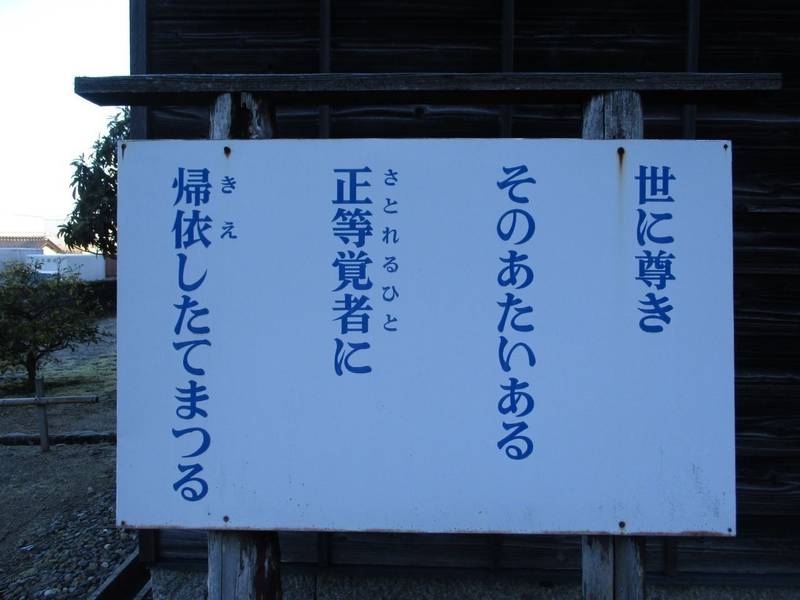 世に尊き
そのあたいある
さとれるひと
正等覚者に
きえ
帰依したてまつる